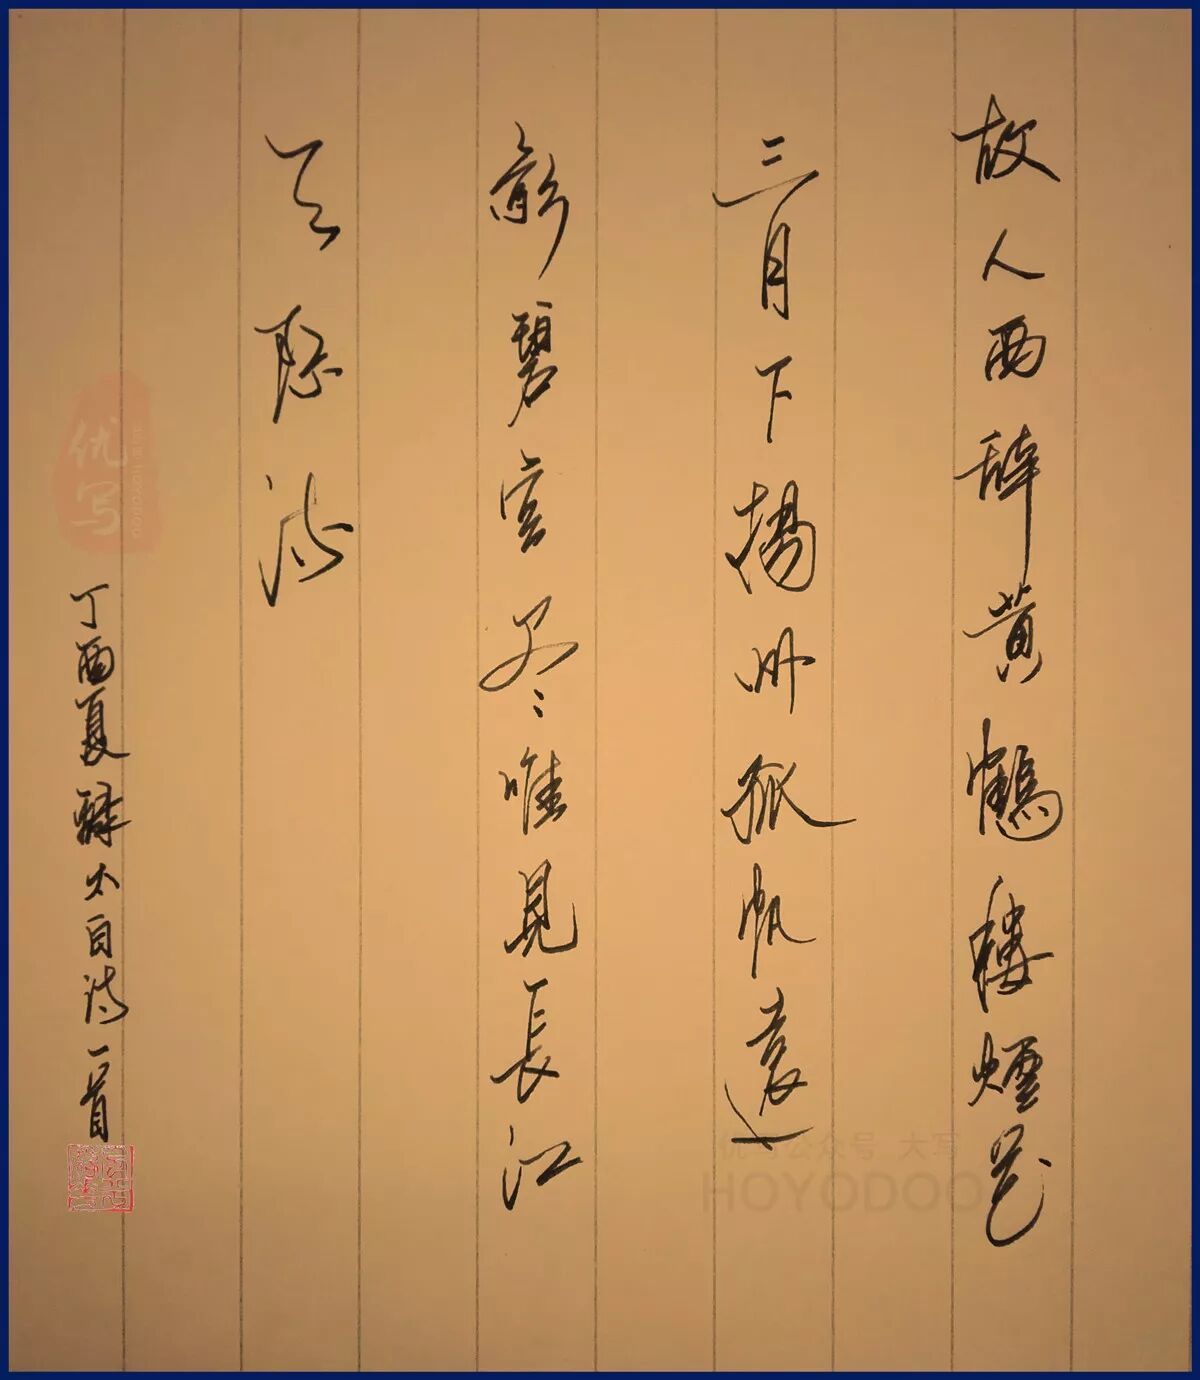 故人西辞黄鶴樓煙花
三月下揚州孤帆遠
影碧空尽唯見長江
天際流
丁酉夏録太白詩一首
优写
优写公众号 大写
HOYODOO